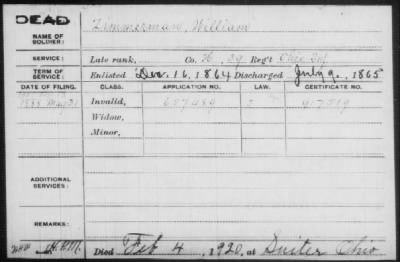 DEAD
Zimmerman, William
NAME OF SOLDIER:
SERVICE: Late rank, Co. H, 29 Reg't Ohio Inf
TERM OF SERVICE: Enlisted Dec. 16, 1864 Discharged July 9, 1865
DATE OF FILING. CLASS. APPLICATION NO. LAW. CERTIFICATE NO.
1888 May 21 Invalid, 657489
Widow,
Minor,
ADDITIONAL SERVICES:
REMARKS:
Died Feb 4, 1920, at Suiter Ohio